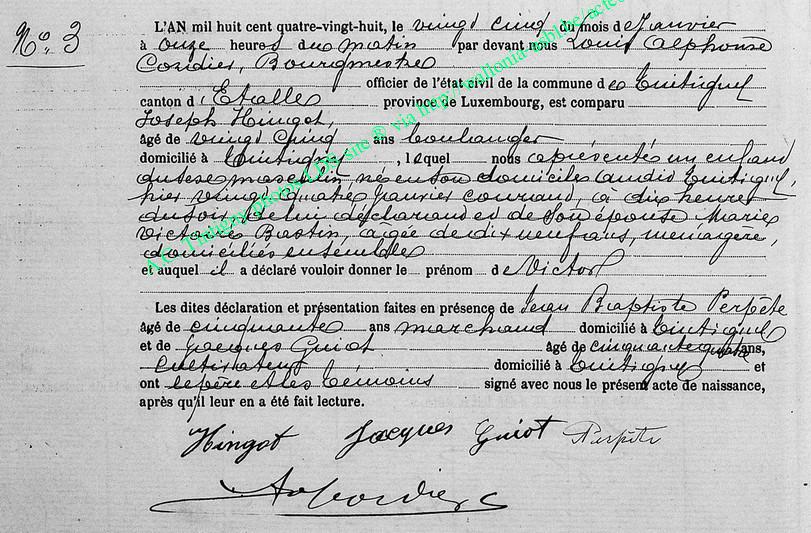 No. 3
L'AN mil huit cent quatre-vingt-huit, le vingt cinq du mois de Janvier
à onze heures du matin par devant nous Louis Alphonse
Cordier, Bourgmestre
officier de l'état civil de la commune de Tintigny
canton d'Etalle province de Luxembourg, est comparu
Joseph Hingot,
âgé de vingt cinq ans boulanger
domicilié à Tintigny, lequel nous a présenté un enfant
du sexe masculin, né en son domicile audit Tintigny,
hier vingt quatre janvier courant, à dix heures
du soir, de lui déclarant et de son épouse Marie
Victoire Bastin, agée de dix neuf ans, ménagère,
domiciliés ensemble
et auquel il a déclaré vouloir donner le prénom de Victor
Les dites déclaration et présentation faites en présence de Jean Baptiste Perpète
âgé de cinquante ans marchand domicilié à Tintigny
et de Jacques Guiot âgé de cinquante quatre ans,
cultivateur domicilié à Tintigny et
ont le père et les témoins signé avec nous le présent acte de naissance,
après qu'il leur en a été fait lecture.
Hingot Jacques Guiot Perpète
A. Cordier
A.C. Tintigny photos LDB site ® via http://wallonia-asbl.be/actes